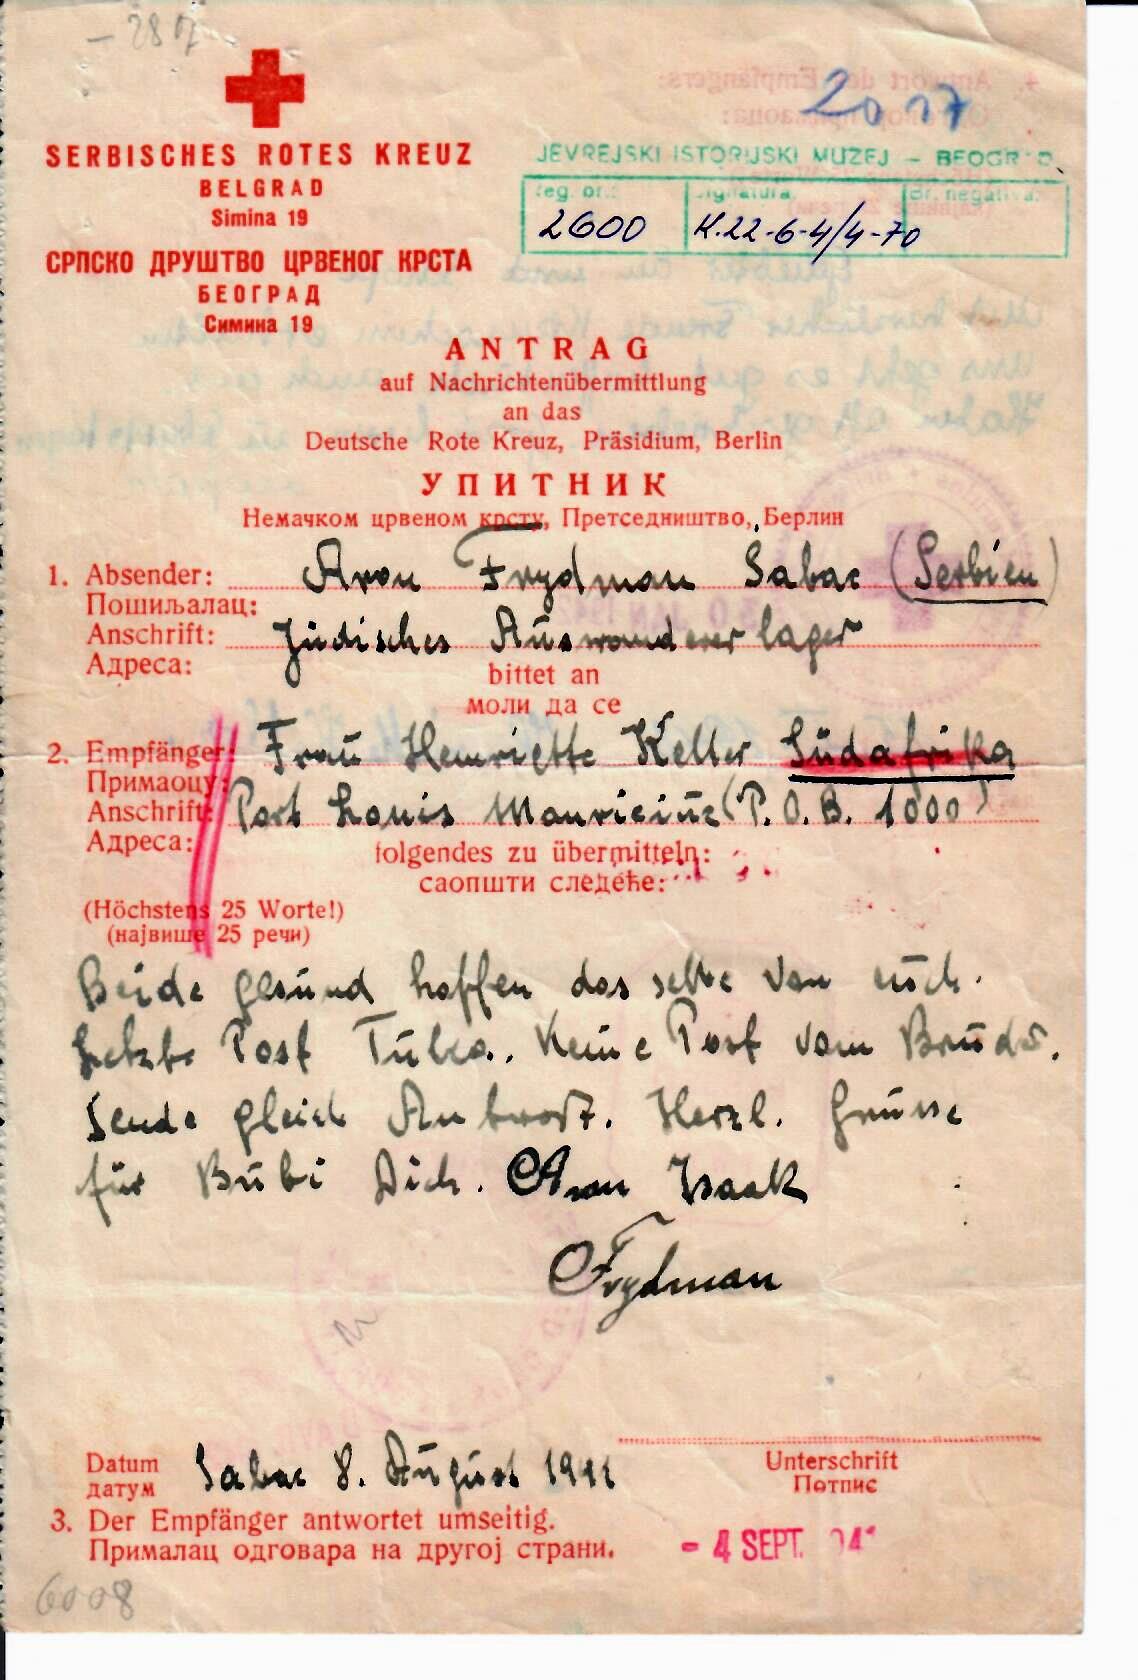 2017
SERBISCHES ROTES KREUZ
BELGRAD
Simina 19
СРПСКО ДРУШТВО ЦРВЕНОГ КРСТА
БЕОГРАД
Симина 19
JEVREJSKI ISTORIJSKI MUZEJ – BEOGRAD
reg. br.: signatura: br. negativa:
2600 K.22-6-4/4-70
ANTRAG
auf Nachrichtenübermittlung
an das
Deutsche Rote Kreuz, Präsidium, Berlin
УПИТНИК
Немачком црвеном крсту, Претседништво, Берлин
1. Absender: Aron Frydman Sabac (Serbien)
Пошиљалац:
Anschrift: Jüdisches Auswandererlager
Адреса:
bittet an
моли да се
2. Empfänger: Frau Henriette Keller Südafrika
Примаоцу:
Anschrift: Port Louis Mauricius (P.O.B. 1000)
Адреса:
folgendes zu übermitteln:
саопшти следеће:
(Höchstens 25 Worte!)
(највише 25 речи)
Beide gesund hoffen das selbe von euch.
Letzte Post Keine Post vom Bruder.
Sende gleich Antwort. Herzl. Grüsse
für Bubi Dich. Aron Isaak
Frydman
Datum Sabac 8. August 1941
датум
Unterschrift
Потпис
3. Der Empfänger antwortet umseitig.
Прималац одговара на другој страни.
- 4 SEPT. 941
6008